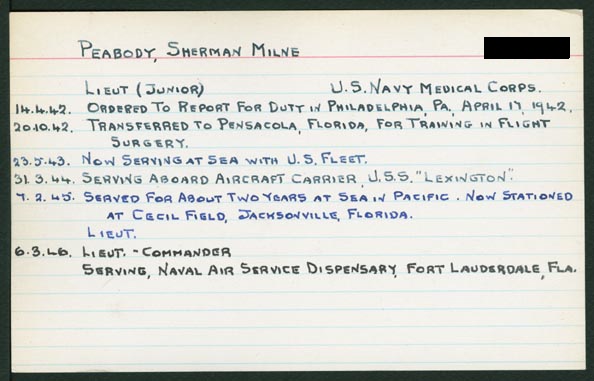 PEABODY, SHERMAN MILNE
LIEUT (JUNIOR) U.S. NAVY MEDICAL CORPS.
14.4.42. ORDERED TO REPORT FOR DUTY IN PHILADELPHIA, PA, APRIL 17, 1942.
20.10.42. TRANSFERRED TO PENSACOLA, FLORIDA, FOR TRAINING IN FLIGHT
SURGERY.
23.5.43. NOW SERVING AT SEA WITH U.S. FLEET.
31.3.44. SERVING ABOARD AIRCRAFT CARRIER, U.S.S. "LEXINGTON".
7.2.45. SERVED FOR ABOUT TWO YEARS AT SEA IN PACIFIC. NOW STATIONED
AT CECIL FIELD, JACKSONVILLE, FLORIDA.
LIEUT.
6.3.46. LIEUT. - COMMANDER
SERVING, NAVAL AIR SERVICE DISPENSARY, FORT LAUDERDALE, FLA.